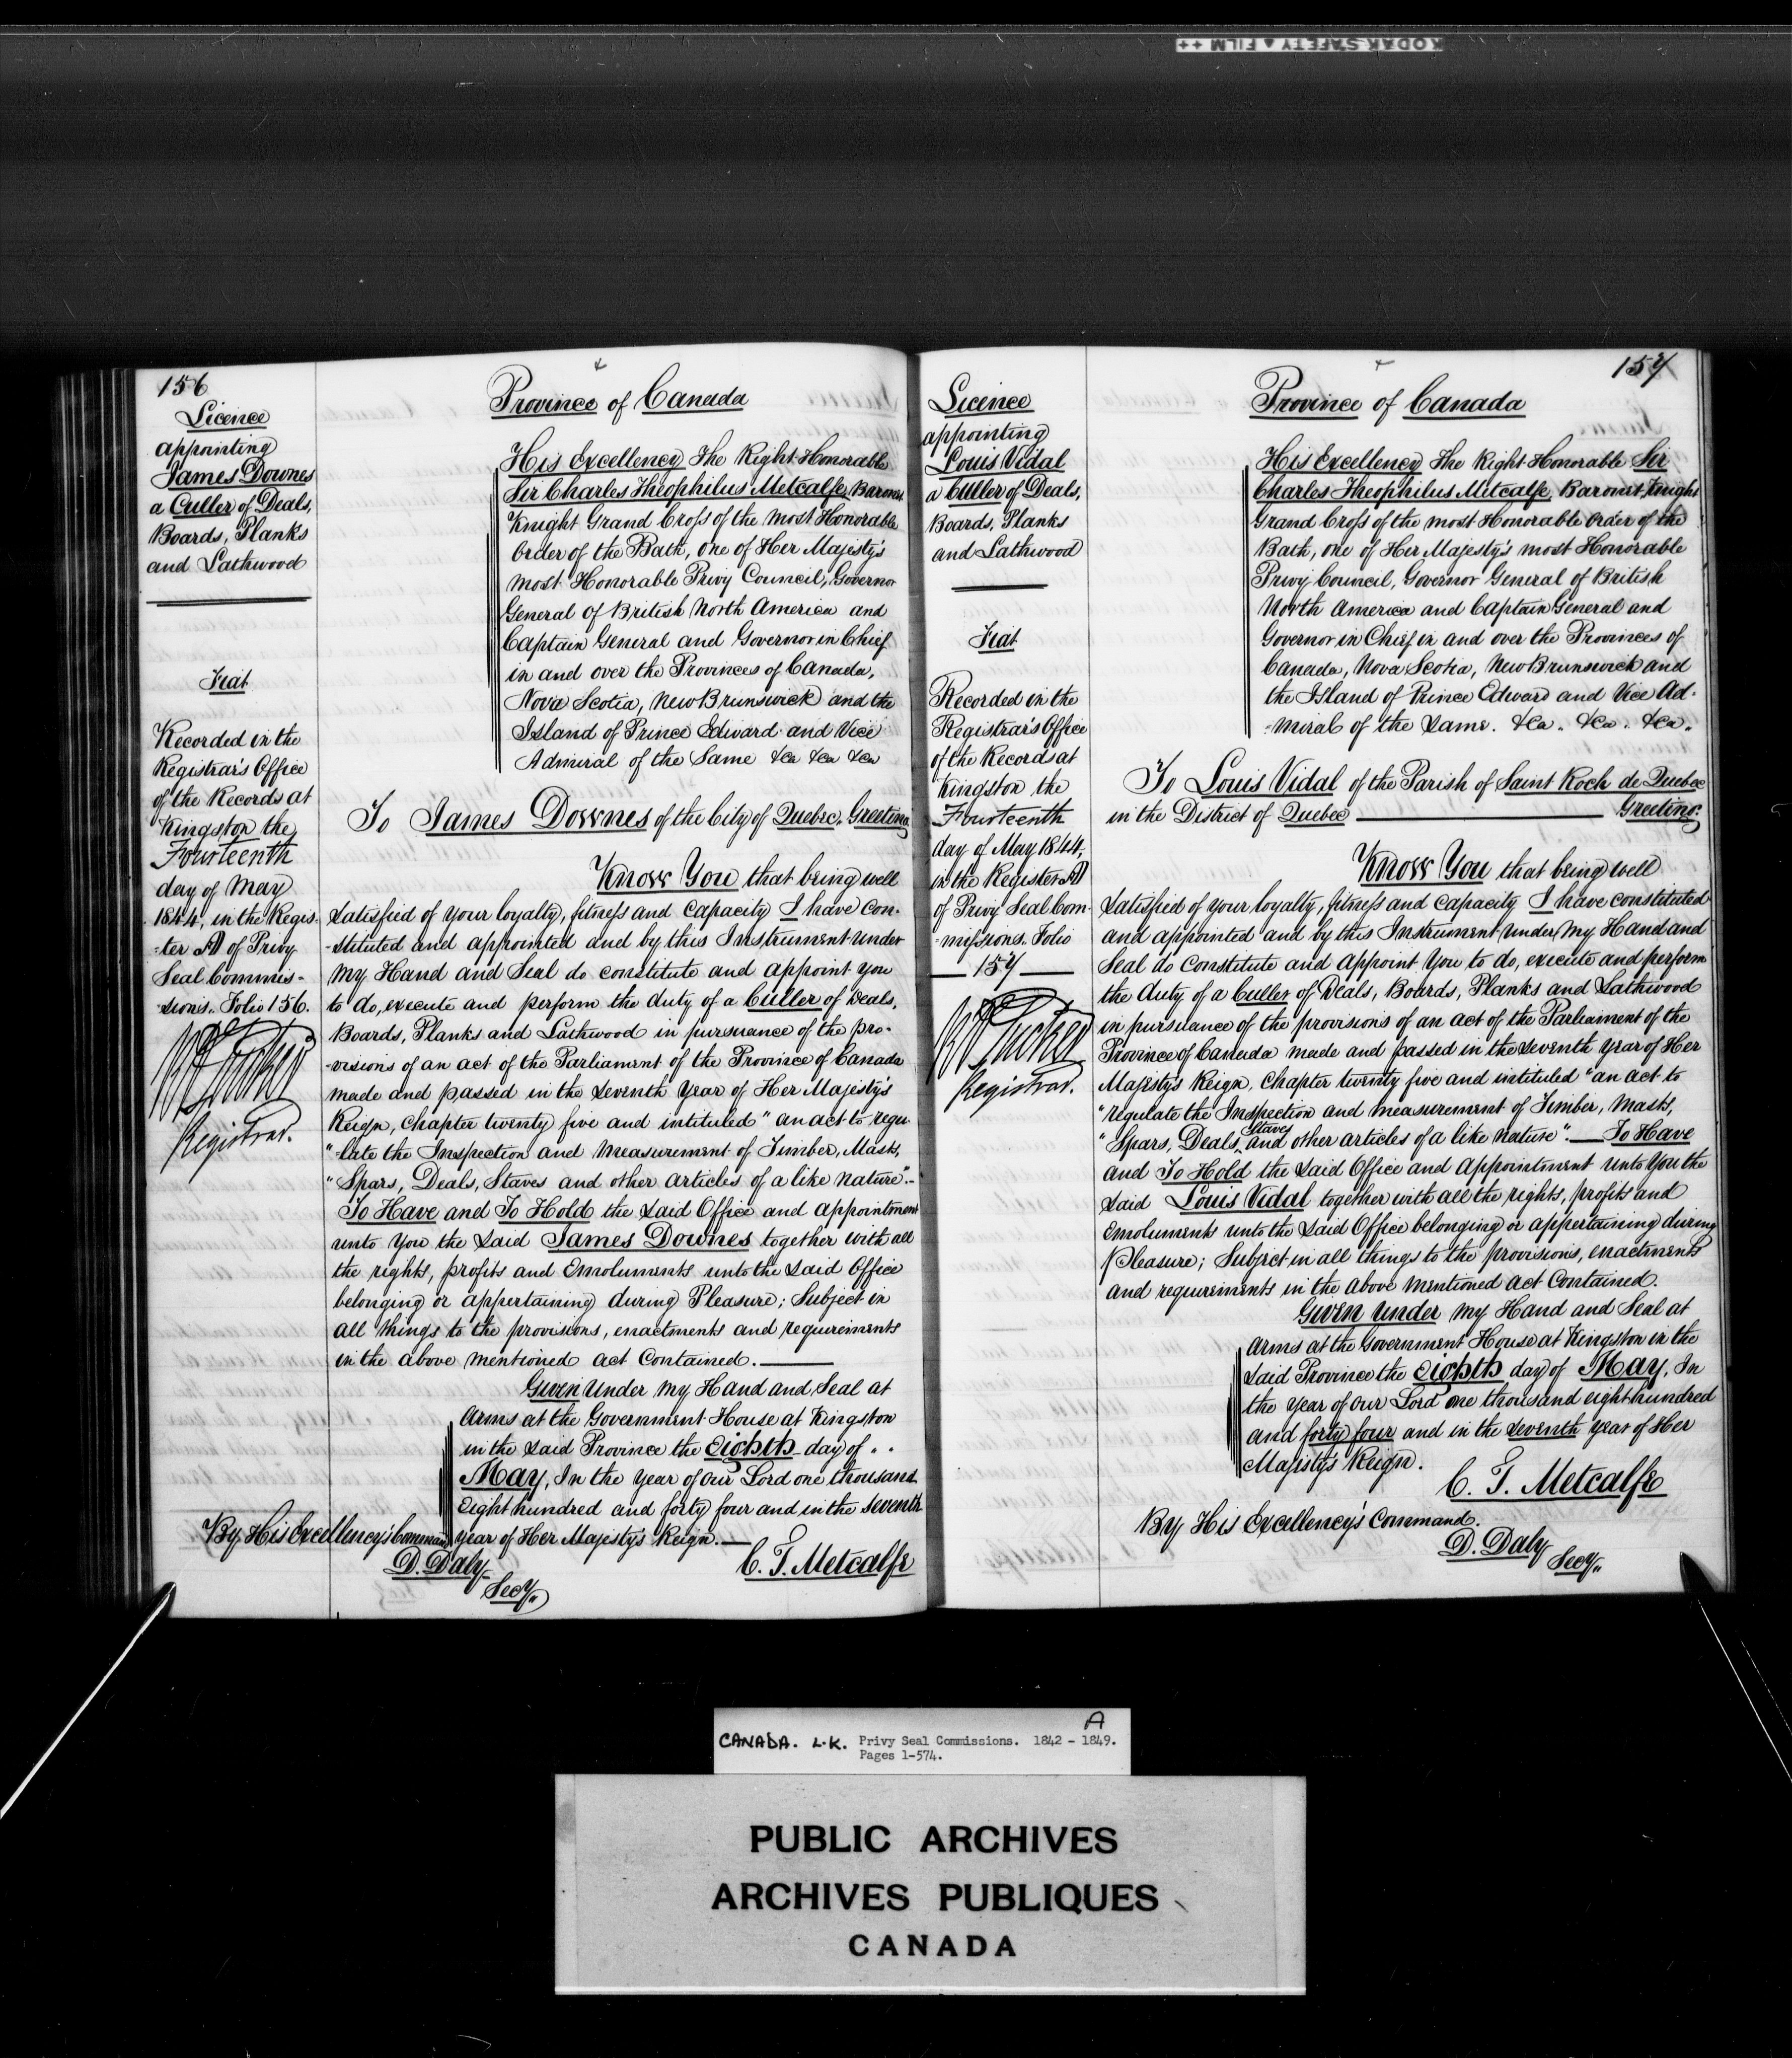 KODAK SAFETY FILM ++
156
Licence
appointing
James Downes
a Culler of Deals,
Boards, Planks
and Lathwood
Fiat
Recorded in the
Registrar's Office
of the Records at
Kingston the
Fourteenth
day of May
1844, in the Regis-
-ter A of Privy
Seal Commis-
-sions. Folio 156.
R A Tucker
Registrar.
Province of Canada
His Excellency The Right Honorable
Sir Charles Theophilus Metcalfe, Baronet
Knight Grand Cross of the Most Honorable
Order of the Bath, One of Her Majesty's
most Honorable Privy Council, Governor
General of British North America and
Captain General and Governor in Chief
in and over the Provinces of Canada,
Nova Scotia, New Brunswick and the
Island of Prince Edward and Vice
Admiral of the Same &ca &ca &ca
To James Downes of the City of Quebec, Greeting
Know You that being well
satisfied of your loyalty, fitness and capacity I have con-
-stituted and appointed and by this Instrument under
my Hand and Seal do constitute and appoint you
to do, execute and perform the duty of a Culler of Deals,
Boards, Planks and Lathwood in pursuance of the pro-
-visions of an act of the Parliament of the Province of Canada
made and passed in the seventh Year of Her Majesty's
Reign, Chapter twenty five and intituled "an act to regu-
"-late the Inspection and Measurement of Timber, Masts,
"Spars, Deals, Staves and other articles of a like nature".-
To Have and To Hold the said Office and appointment
unto You the said James Downes together with all
the rights, profits and Emoluments unto the said Office
belonging or appertaining during Pleasure; Subject in
all things to the provisions, enactments and requirements
in the above mentioned act Contained.
Given Under my Hand and Seal at
Arms at the Government House at Kingston
in the said Province the Eighth day of
May, In the Year of Our Lord one thousand
Eight hundred and forty four and in the seventh
year of Her Majesty's Reign.
By His Excellency's Command
C. T. Metcalfe
D. Daly
Secy.
157
Licence
appointing
Louis Vidal
a Culler of Deals,
Boards, Planks
and Lathwood
Fiat
Recorded in the
Registrar's Office
of the Records at
Kingston the
Fourteenth
day of May 1844,
in the Register A
of Privy Seal Com-
-missions. Folio
157
R A Tucker
Registrar.
Province of Canada
His Excellency The Right Honorable Sir
Charles Theophilus Metcalfe, Baronet Knight
Grand Cross of the most Honorable Order of the
Bath, one of Her Majesty's most Honorable
Privy Council, Governor General of British
North America and Captain General and
Governor in Chief in and over the Provinces of
Canada, Nova Scotia, New Brunswick and
the Island of Prince Edward and Vice Ad-
-miral of the same. &ca. &ca. &ca.
To Louis Vidal of the Parish of Saint Roch de Quebec
in the District of Quebec Greeting.
Know You that being well
satisfied of your loyalty, fitness and capacity I have constituted
and appointed and by this Instrument under my Hand and
Seal do constitute and appoint You to do, execute and perform
the duty of a Culler of Deals, Boards, Planks and Lathwood
in pursuance of the provisions of an act of the Parliament of the
Province of Canada made and passed in the seventh year of Her
Majesty's Reign, Chapter twenty five and intituled "an act to
"regulate the Inspection and measurement of Timber, Masts,
"Spars, Deals, Staves and other articles of a like nature". To Have
and To Hold the said Office and appointment unto You the
said Louis Vidal together with all the rights, profits and
Emoluments unto the said Office belonging or appertaining during
Pleasure; Subject in all things to the provisions, enactments
and requirements in the above mentioned act Contained.
Given under my Hand and Seal at
Arms at the Government House at Kingston in the
said Province the Eighth day of May, In
the year of our Lord one thousand eight hundred
and forty four and in the seventh year of Her
Majesty's Reign.
C. T. Metcalfe
By His Excellency's Command.
D. Daly
Secy.
A
CANADA. L.K. Privy Seal Commissions. 1842 - 1849.
Pages 1-574.
PUBLIC ARCHIVES
ARCHIVES PUBLIQUES
CANADA